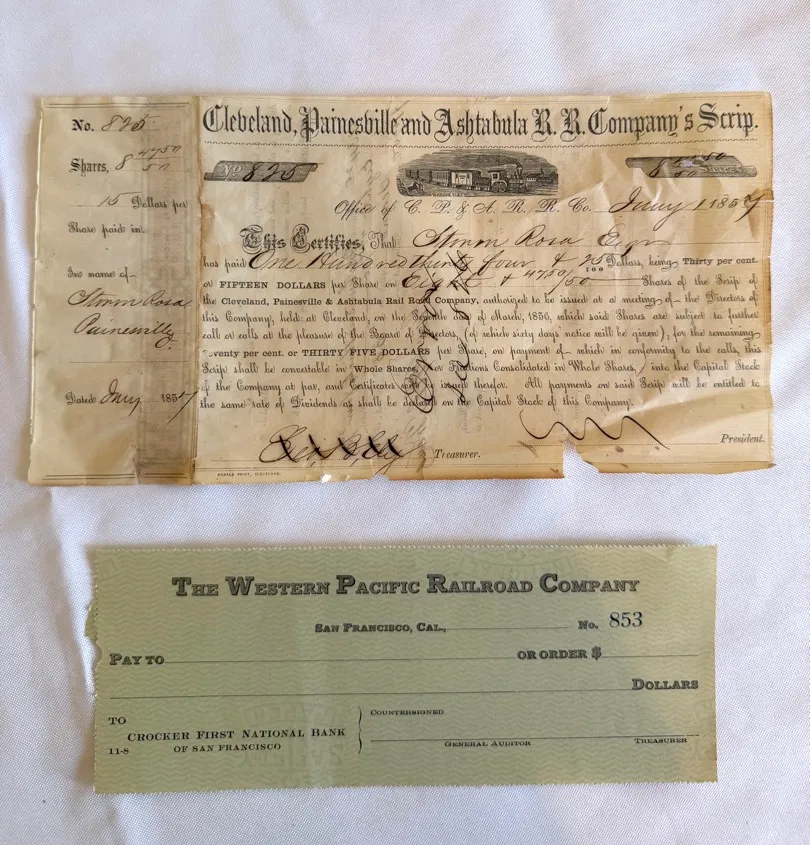 No. 825
Shares, 8 47.50/50
15 Dollars per
Share paid in.
In name of
Storm Rosa
Painesville
Dated Jany 1857
Cleveland, Painesville and Ashtabula R. R. Company's Scrip.
No 825
8 Shares
Office of C. P. & A. R. R. Co. Jany 1 1857
This Certifies, That Storm Rosa Esqr
has paid One Hundred thirty four & 25/100 Dollars, being Thirty per cent.
or FIFTEEN DOLLARS per Share on Eight & 47.50/50 Shares of the Scrip of
the Cleveland, Painesville & Ashtabula Rail Road Company, authorized to be issued at a meeting of the Directors of
this Company, held at Cleveland, on the Seventh day of March, 1856, which said Shares are subject to further
call or calls at the pleasure of the Board of Directors, (of which sixty days' notice will be given), for the remaining
Seventy per cent. or THIRTY FIVE DOLLARS per Share, on payment of which in conformity to the calls, this
Scrip shall be convertable in Whole Shares, (or Fractions Consolidated in Whole Shares,) into the Capital Stock
of the Company at par, and Certificates will be issued therefor. All payments on said Scrip will be entitled to
the same rate of Dividends as shall be declared on the Capital Stock of this Company.
Treasurer.
President.
HERALD PRINT, CLEVELAND.
THE WESTERN PACIFIC RAILROAD COMPANY
SAN FRANCISCO, CAL., No. 853
PAY TO OR ORDER $
DOLLARS
TO
CROCKER FIRST NATIONAL BANK
11-8 OF SAN FRANCISCO
COUNTERSIGNED
GENERAL AUDITOR TREASURER